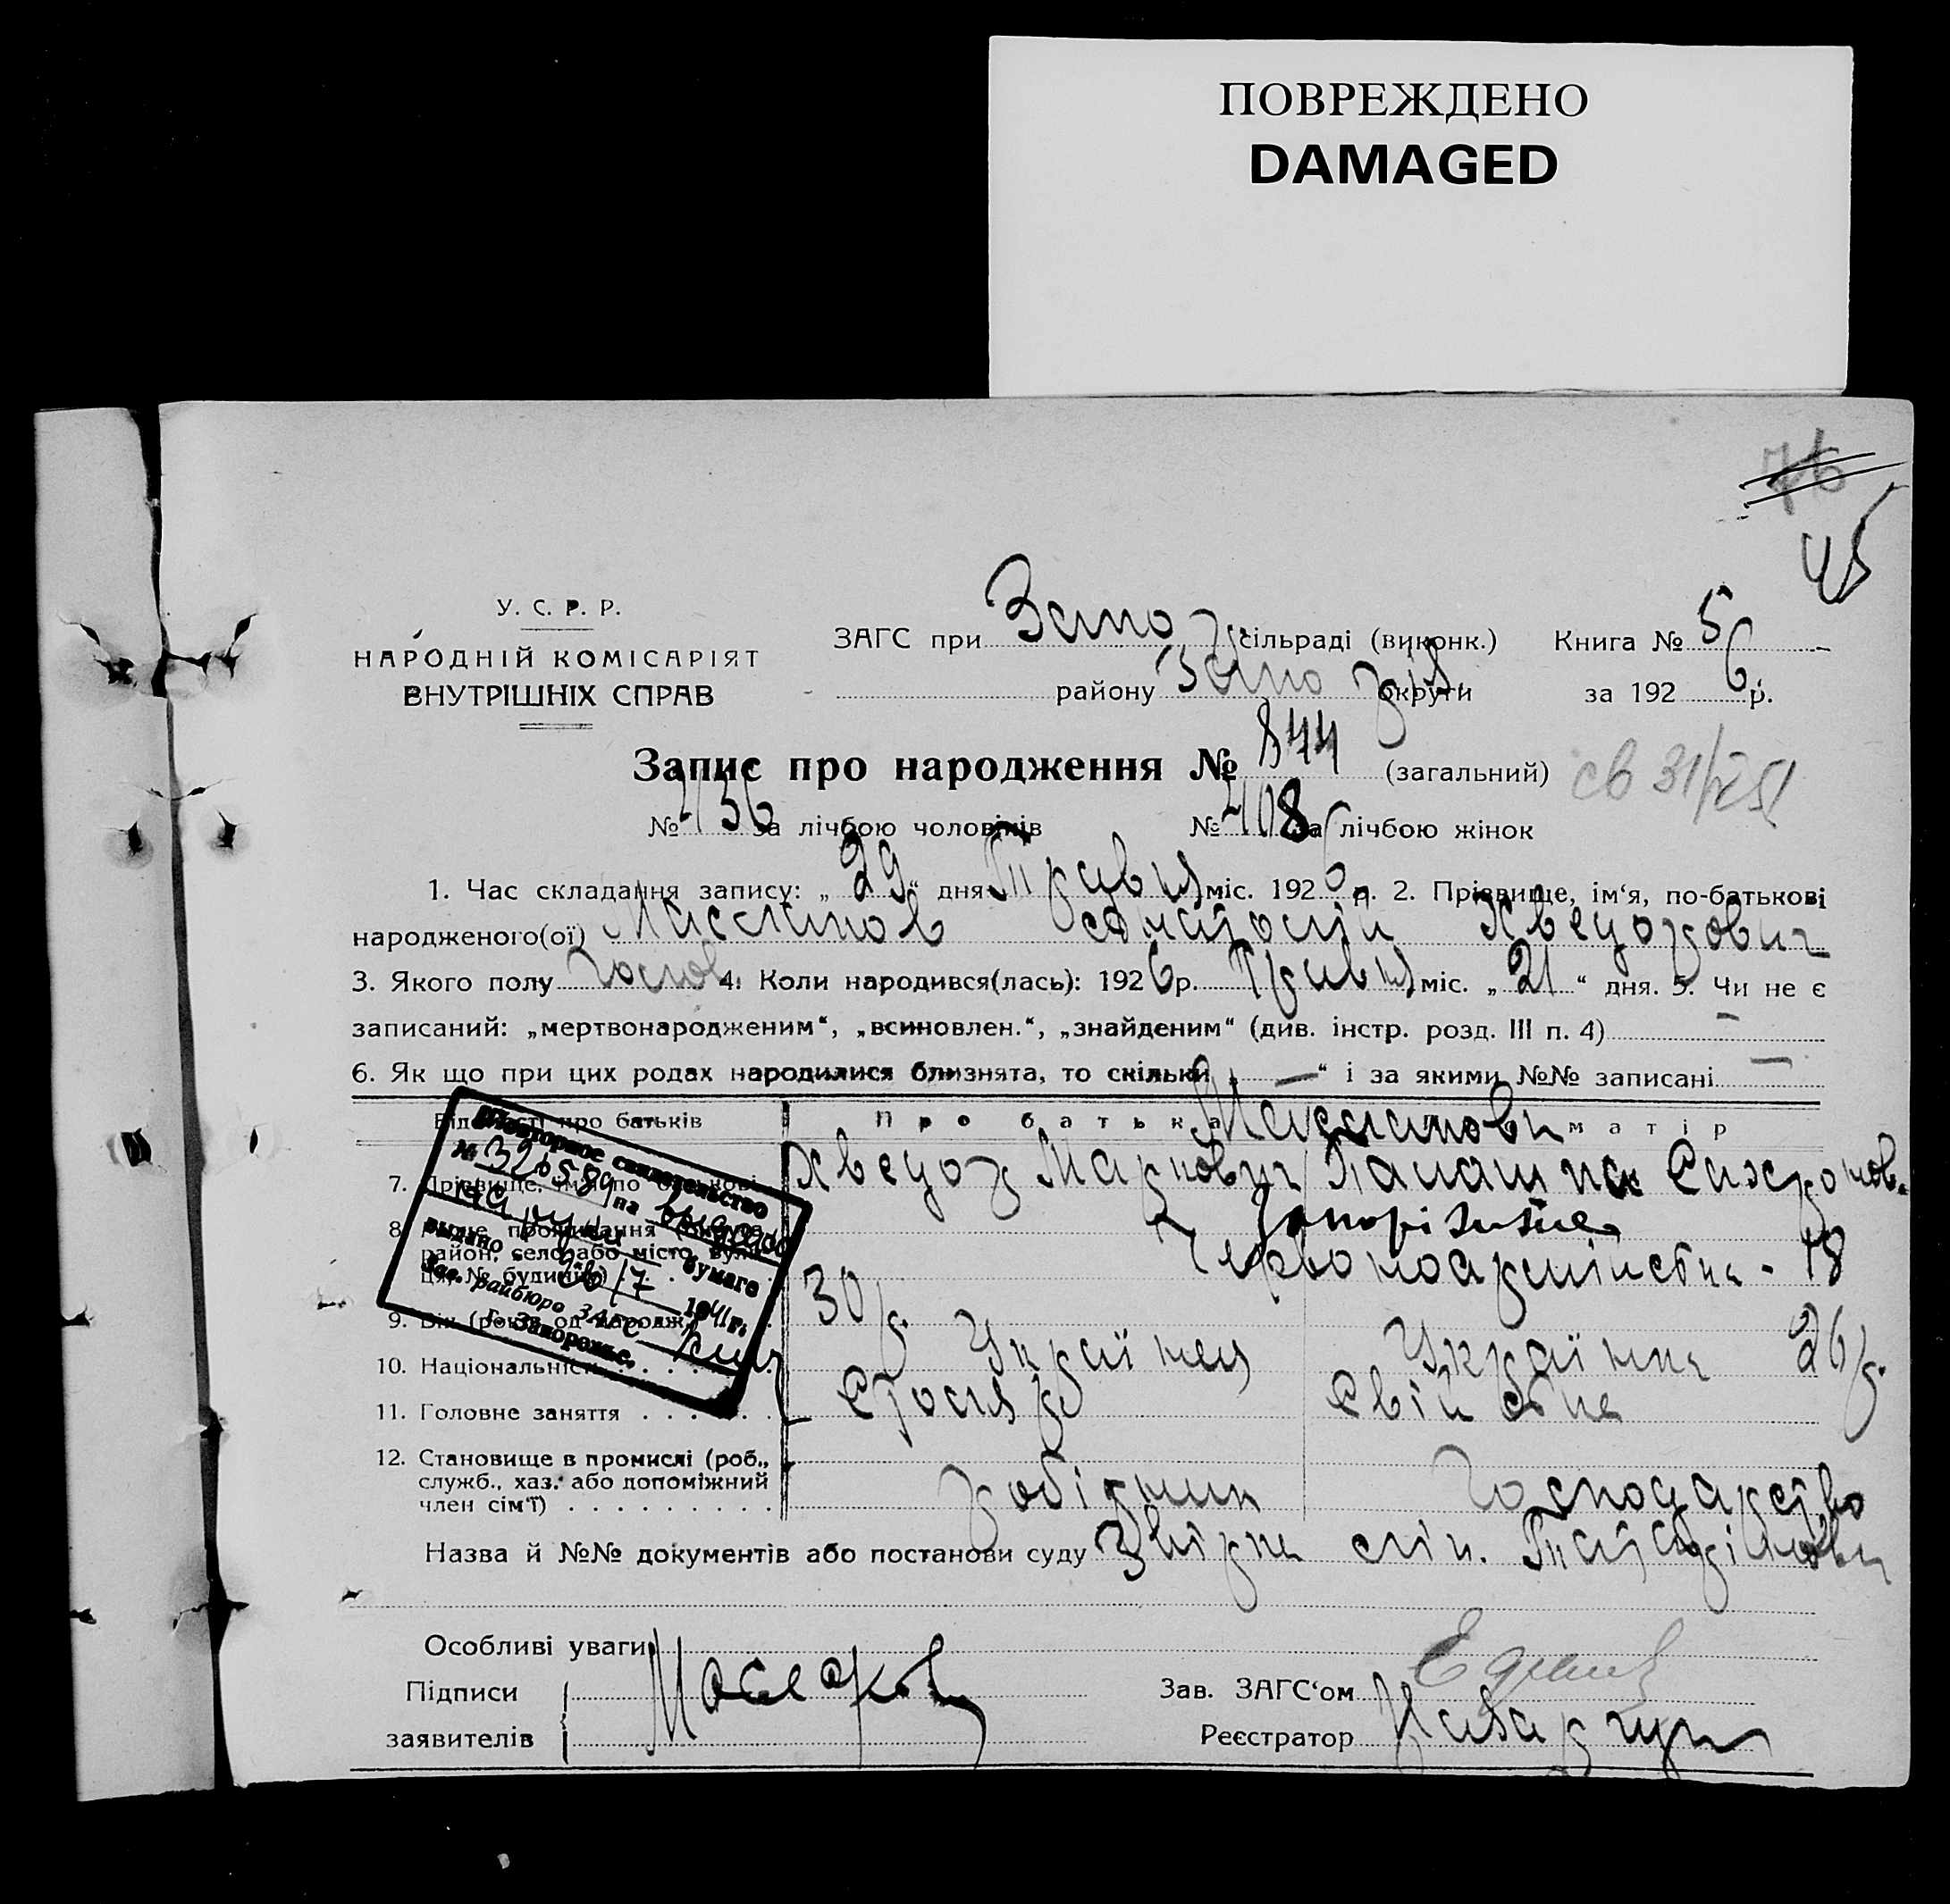 ПОВРЕЖДЕНО
DAMAGED
76
45
У. С. Р. Р.
НАРОДНІЙ КОМІСАРІЯТ
ВНУТРІШНІХ СПРАВ
ЗАГС при Запо сільраді (виконк.) Книга № 5
району Запо округи за 192 6 р.
Запис про народження № 844 (загальний)
№ 436 за лічбою чоловіків № 408 за лічбою жінок
1. Час складання запису: „ 29 “ дня Травня міс. 192 6 р. 2. Прізвище, ім‘я, по-батькові
народженого(ої) Анатолій Хведорович
3. Якого полу чолов 4. Коли народився(лась): 192 6 р. Травня міс. „ 21 “ дня. 5. Чи не є
записаний: „мертвонародженим“, „всиновлен.“, „знайденим“ (див. інстр. розд. III п. 4) —
6. Як що при цих родах народилися близнята, то скільки „ — “ і за якими №№ записані —
Відомості про батьків Про батька матір
7. Прізвище, ім‘я, по батькові Хведор Маркович
8. Місце проживання район, село або місто, вулиця, № будинку) Запоріжжя
Червоноармійська - 18
9. Вік (років од народж.) 30 р. 26 р.
10. Національність Українец Українка
11. Головне заняття Столяр Свійське
12. Становище в промислі (роб., служб., хаз. або допоміжний член сім‘ї) робітник Господарство
Повторное свидетельство
№ 326589 на
выдано бумаге
26/7 1941 г.
Зав. райбюро ЗАГС
г. Запорожье.
Назва й №№ документів або постанови суду
Особливі уваги
Підписи заявителів
Зав. ЗАГС‘ом
Реєстратор